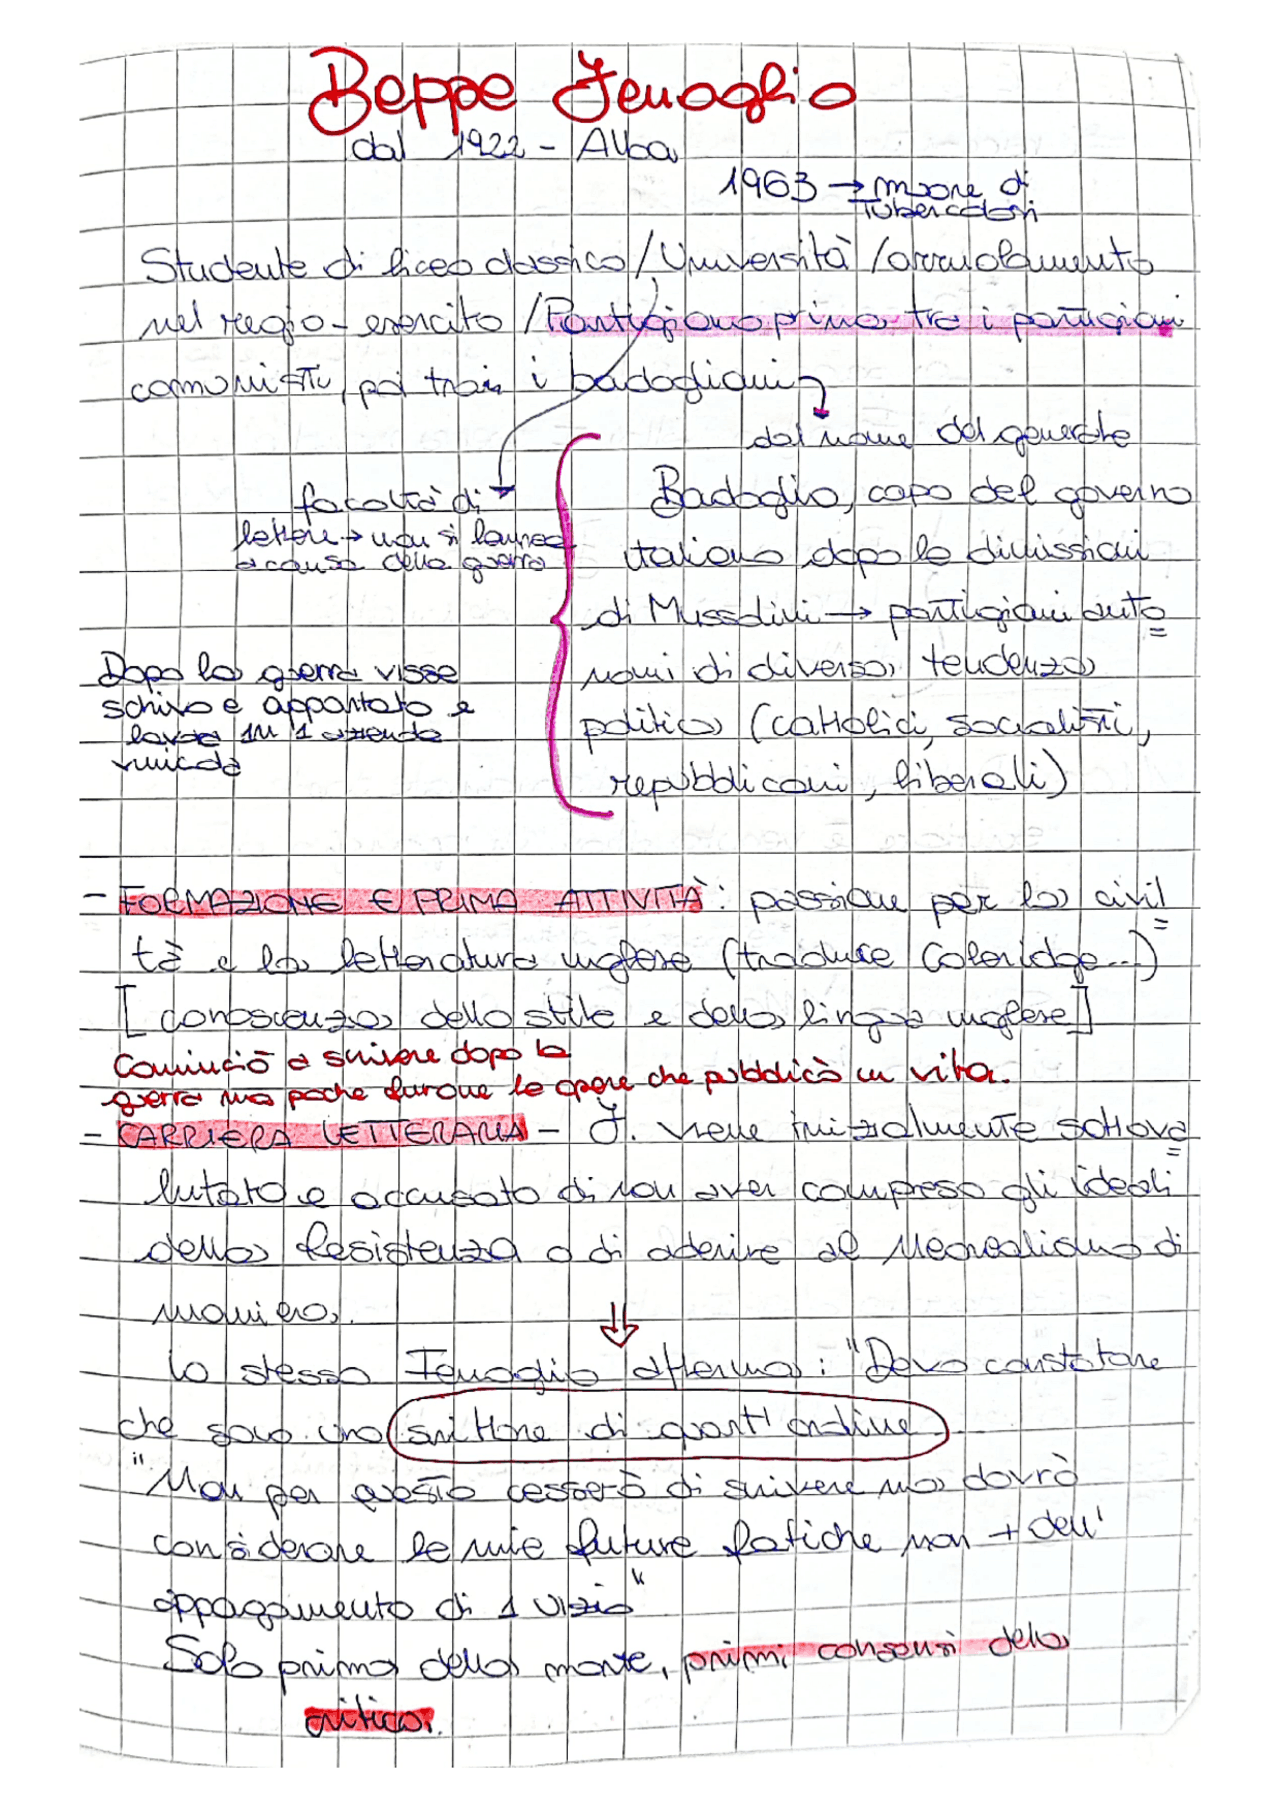 Beppe Fenoglio
dal 1922 - Alba
1963 → muore di
Tubercolosi
Studente di liceo classico / Università / arruolamento
nel regio-esercito / Partigiano prima tra i partigiani
comunisti, poi tra i badogliani
dal nome del generale
Badoglio, capo del governo
italiano dopo le dimissioni
di Mussolini → partigiani auto=
nomi di diversa tendenza
politica (cattolici, socialisti,
repubblicani, liberali)
facoltà di
lettere → non si laurea
a causa della guerra
Dopo la guerra visse
schivo e appartato e
lavora in 1 azienda
vinicola
- FORMAZIONE E PRIMA ATTIVITÀ: passione per la civil=
tà e la letteratura inglese (traduce Coleridge...)
[conoscenza dello stile e della lingua inglese]
Cominciò a scrivere dopo la
guerra ma poche furono le opere che pubblicò in vita.
- CARRIERA LETTERARIA - F. viene inizialmente sottova=
lutato e accusato di non aver compreso gli ideali
della Resistenza o di aderire al Neorealismo di
maniera.
⇓
Lo stesso Fenoglio afferma: "Devo constatare
che sono uno scrittore di quart'ordine
"Non per questo cesserò di scrivere ma dovrò
considerare le mie future fatiche non + dell'
appagamento di 1 vizio"
Solo prima della morte, primi consensi della
critica.